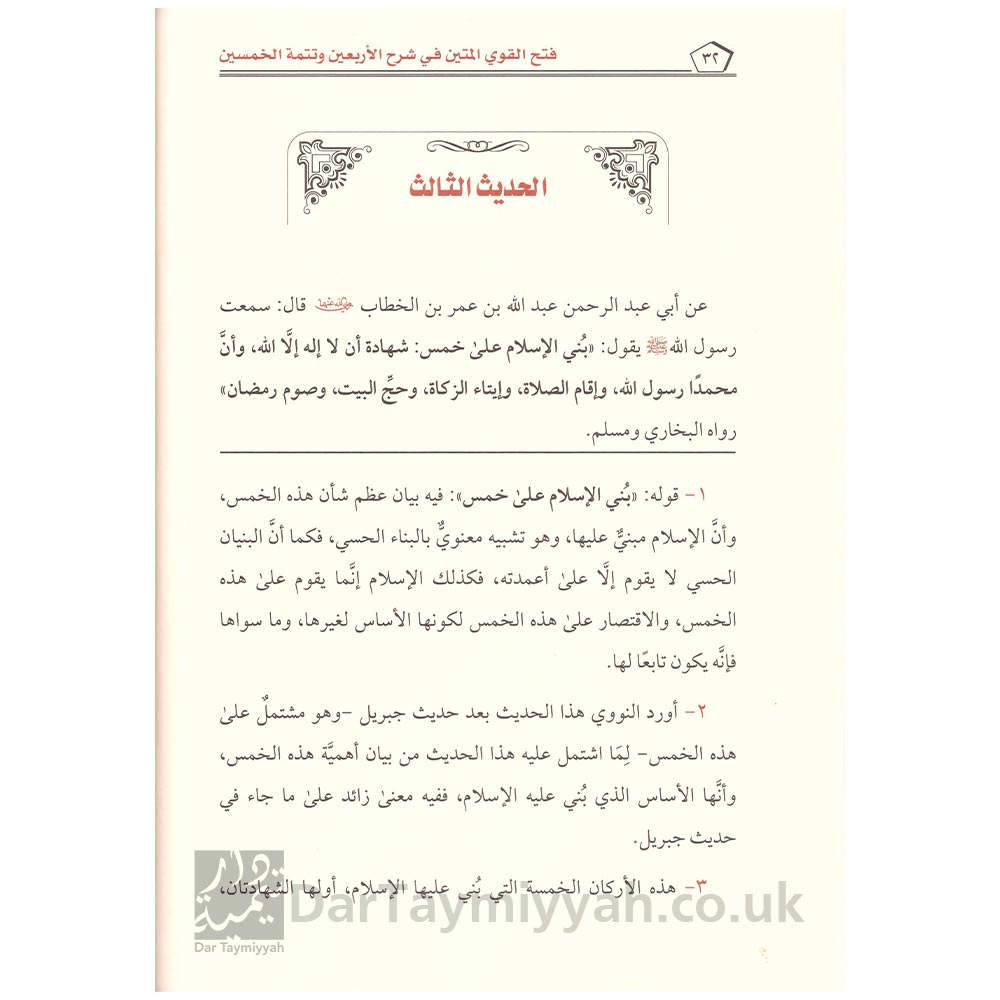 ٣٢
فتح القوي المتين في شرح الأربعين وتتمة الخمسين
الحديث الثالث
عن أبي عبد الرحمن عبد الله بن عمر بن الخطاب رضي الله عنهما قال: سمعت
رسول الله ﷺ يقول: «بُني الإسلام علىٰ خمس: شهادة أن لا إله إلَّا الله، وأنَّ
محمدًا رسول الله، وإقام الصلاة، وإيتاء الزكاة، وحجِّ البيت، وصوم رمضان»
رواه البخاري ومسلم.
١- قوله: «بُني الإسلام علىٰ خمس»: فيه بيان عظم شأن هذه الخمس،
وأنَّ الإسلام مبنيٌّ عليها، وهو تشبيه معنويٌّ بالبناء الحسي، فكما أنَّ البنيان
الحسي لا يقوم إلَّا علىٰ أعمدته، فكذلك الإسلام إنَّما يقوم علىٰ هذه
الخمس، والاقتصار علىٰ هذه الخمس لكونها الأساس لغيرها، وما سواها
فإنَّه يكون تابعًا لها.
٢- أورد النووي هذا الحديث بعد حديث جبريل -وهو مشتملٌ علىٰ
هذه الخمس- لِمَا اشتمل عليه هذا الحديث من بيان أهميَّة هذه الخمس،
وأنَّها الأساس الذي بُني عليه الإسلام، ففيه معنىٰ زائد علىٰ ما جاء في
حديث جبريل.
٣- هذه الأركان الخمسة التي بُني عليها الإسلام، أولها الشهادتان،
دار تيمية
Dar Taymiyyah
DarTaymiyyah.co.uk